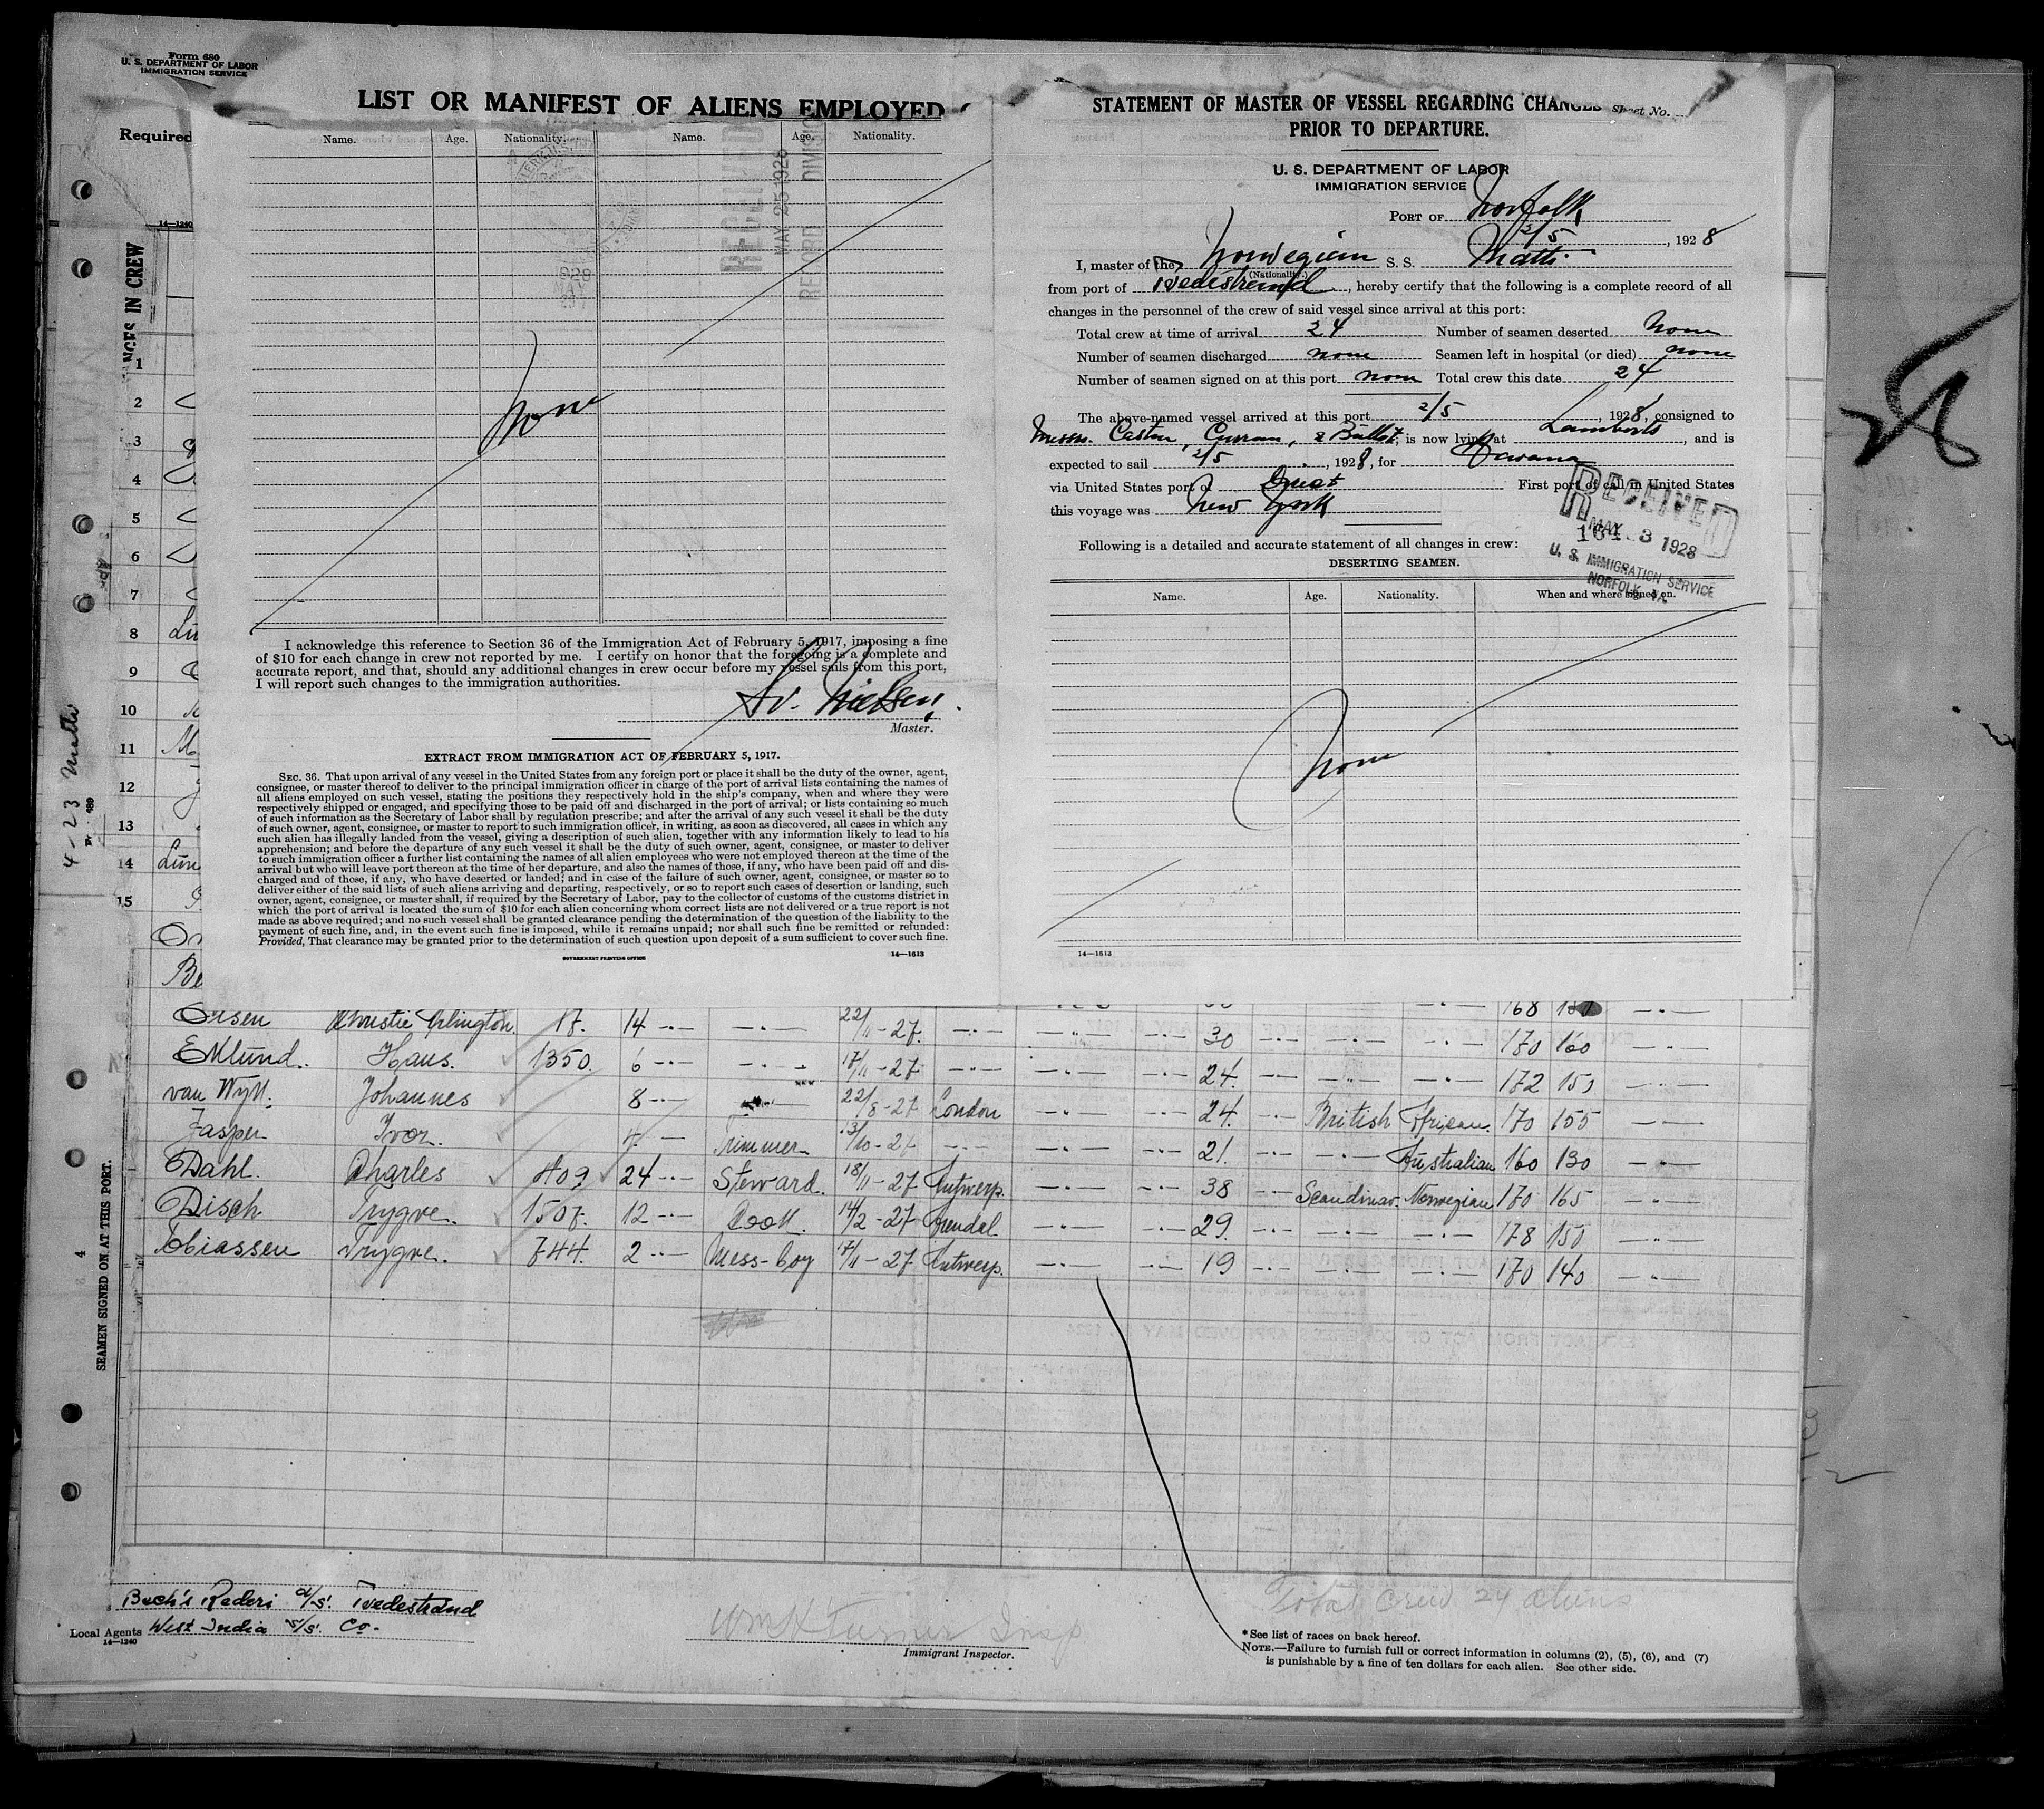 Form 680
U. S. DEPARTMENT OF LABOR
IMMIGRATION SERVICE
LIST OR MANIFEST OF ALIENS EMPLOYED
Sheet No.
Required
14—1240
Name. Age. Nationality. Name. Age. Nationality.
RECEIVED
MAY 25 1928
RECORD DIVISION
None
I acknowledge this reference to Section 36 of the Immigration Act of February 5, 1917, imposing a fine
of $10 for each change in crew not reported by me. I certify on honor that the foregoing is a complete and
accurate report, and that, should any additional changes in crew occur before my vessel sails from this port,
I will report such changes to the immigration authorities.
Nielsen
Master.
EXTRACT FROM IMMIGRATION ACT OF FEBRUARY 5, 1917.
SEC. 36. That upon arrival of any vessel in the United States from any foreign port or place it shall be the duty of the owner, agent,
consignee, or master thereof to deliver to the principal immigration officer in charge of the port of arrival lists containing the names of
all aliens employed on such vessel, stating the positions they respectively hold in the ship's company, when and where they were
respectively shipped or engaged, and specifying those to be paid off and discharged in the port of arrival; or lists containing so much
of such information as the Secretary of Labor shall by regulation prescribe; and after the arrival of any such vessel it shall be the duty
of such owner, agent, consignee, or master to report to such immigration officer, in writing, as soon as discovered, all cases in which any
such alien has illegally landed from the vessel, giving a description of such alien, together with any information likely to lead to his
apprehension; and before the departure of any such vessel it shall be the duty of such owner, agent, consignee, or master to deliver
to such immigration officer a further list containing the names of all alien employees who were not employed thereon at the time of the
arrival but who will leave port thereon at the time of her departure, and also the names of those, if any, who have been paid off and dis-
charged and of those, if any, who have deserted or landed; and in case of the failure of such owner, agent, consignee, or master so to
deliver either of the said lists of such aliens arriving and departing, respectively, or so to report such cases of desertion or landing, such
owner, agent, consignee, or master shall, if required by the Secretary of Labor, pay to the collector of customs of the customs district in
which the port of arrival is located the sum of $10 for each alien concerning whom correct lists are not delivered or a true report is not
made as above required; and no such vessel shall be granted clearance pending the determination of the question of the liability to the
payment of such fine, and, in the event such fine is imposed, while it remains unpaid; nor shall such fine be remitted or refunded:
Provided, That clearance may be granted prior to the determination of such question upon deposit of a sum sufficient to cover such fine.
GOVERNMENT PRINTING OFFICE 14—1613
STATEMENT OF MASTER OF VESSEL REGARDING CHANGES
PRIOR TO DEPARTURE.
U. S. DEPARTMENT OF LABOR
IMMIGRATION SERVICE
PORT OF Norfolk
2/5, 1928
I, master of the Norwegian S. S. Matti
(Nationality.)
from port of Tvedestrand, hereby certify that the following is a complete record of all
changes in the personnel of the crew of said vessel since arrival at this port:
Total crew at time of arrival 24 Number of seamen deserted None
Number of seamen discharged none Seamen left in hospital (or died) none
Number of seamen signed on at this port none Total crew this date 24
The above-named vessel arrived at this port 2/5, 1928, consigned to
Messrs. Castner, Curran, & Bullet, is now lying at Lamberts, and is
expected to sail 2/5, 1928, for Havana
via United States port of Direct First port of call in United States
this voyage was New York
RECEIVED
MAY 3 1928
U. S. IMMIGRATION SERVICE
NORFOLK, VA.
Following is a detailed and accurate statement of all changes in crew:
DESERTING SEAMEN.
Name. Age. Nationality. When and where signed on.
None
14—1613
4-23 Matti
1
2
3
4
5
6
7
8
9
10
11
12
13
14
15
SEAMEN SIGNED ON AT THIS PORT.
168
Olsen Christie Arlington. 17. 14 22/11-27. 30 170 160
Eklund. Hans. 1350. 6 17/11-27 24. 172 150
van Wyk. Johannes 8 22/8-27 London 24. British African. 170 155
Jasper Ivor. 4. Trimmer 13/10-27 21. Australian 160 130
Dahl. Charles 409 24 Steward. 18/11-27 Antwerp. 38 Scandinav. Norwegian 170 165
Disch Trygve. 1507. 12 Cook. 14/2-27 Arendal 29. 178 150
Tobiassen Trygve. 744. 2 Mess-boy 17/11-27 Antwerp. 19 170 140
Bech's Rederi a/s. Tvedestrand
Local Agents West India s/s. Co.
14—1240
Wm H Turner Insp
Immigrant Inspector.
Total Crew 24 aliens
*See list of races on back hereof.
NOTE.—Failure to furnish full or correct information in columns (2), (5), (6), and (7)
is punishable by a fine of ten dollars for each alien. See other side.